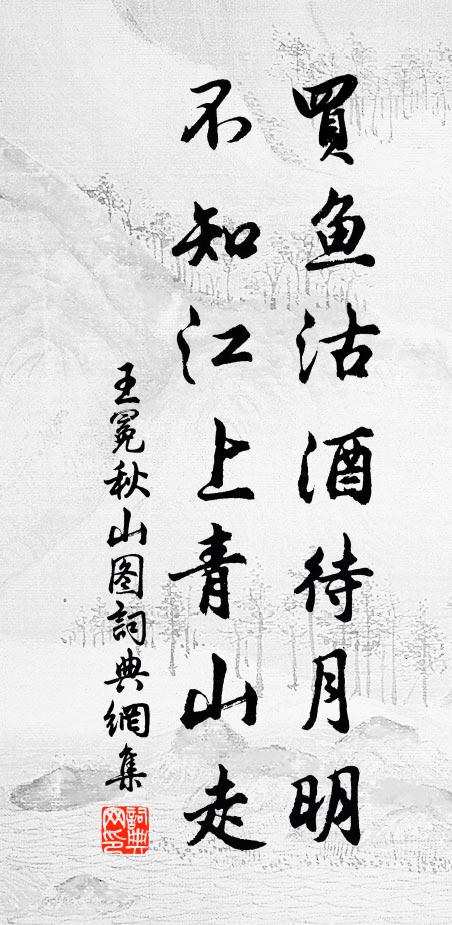 買鱼沽酒待月明
不知江上青山走
王冕秋山图詞典網集
詞典网印